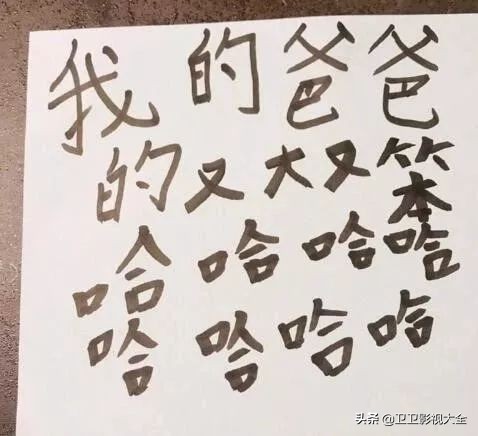 我的爸爸
的又大又笨
哈哈哈哈
哈哈哈哈
头条 @卫卫影视大全